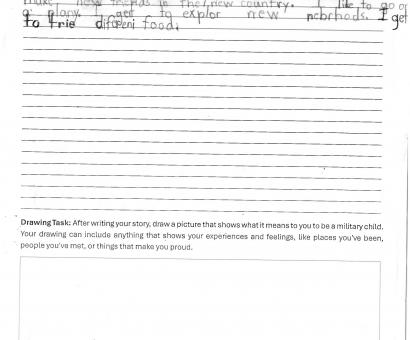 make new freinds in the new country. I like to go on
a plane. I get to explor new nebrhods. I get
to trie difreni food.
Drawing Task: After writing your story, draw a picture that shows what it means to you to be a military child.
Your drawing can include anything that shows your experiences and feelings, like places you've been,
people you've met, or things that make you proud.